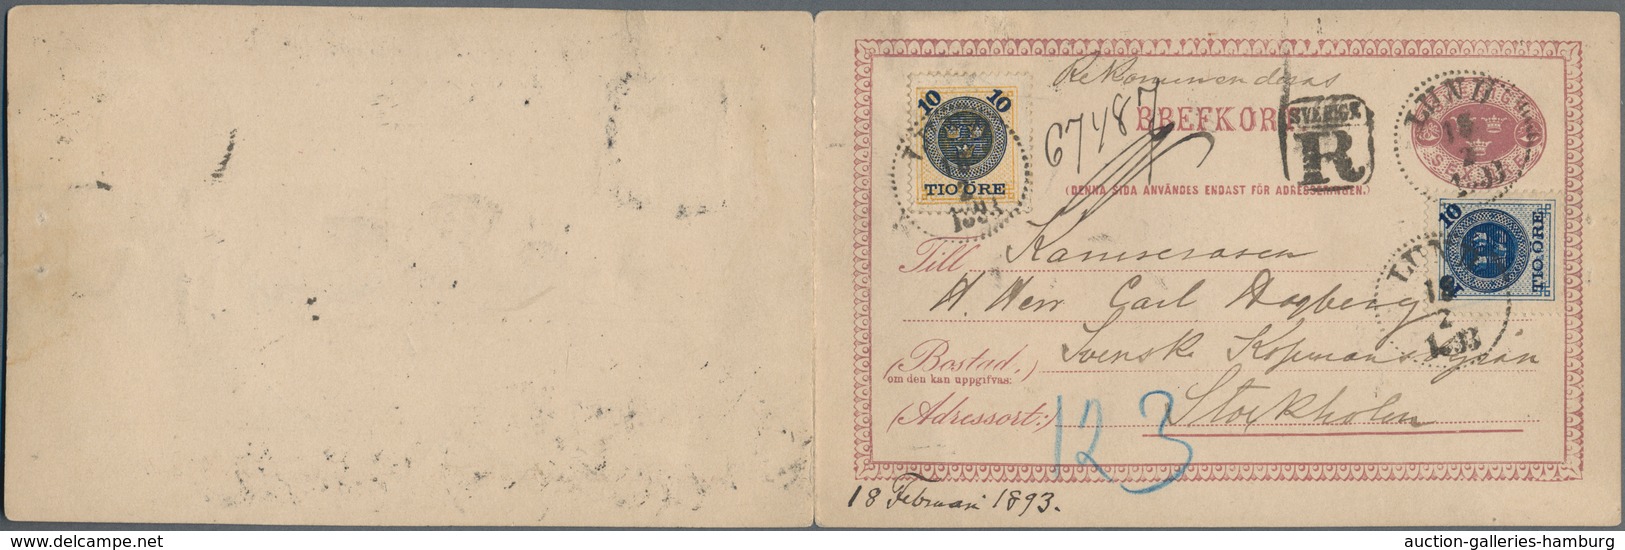 Rekommenderas
67487
BREFKORT
SVERIGE
R
(DENNA SIDA ANVÄNDES ENDAST FÖR ADRESSERINGEN.)
10 10
TIO ÖRE
LUND
18
2
1893
10
TIO ÖRE
LUND
18
2
1893
Till
H. Herr Carl Hagberg
(Bostad,) Svenska
om den kan uppgifvas:
(Adressort:) Stockholm
123
18 Februari 1893.
www.delcampe.net
auction-galleries-hamburg